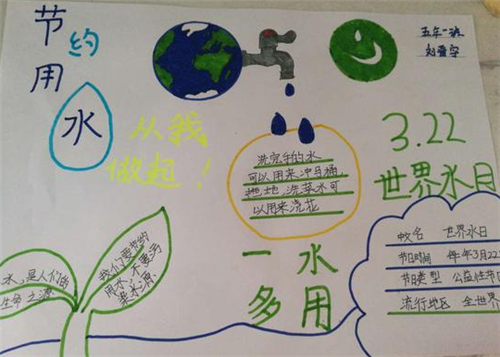 节
约
用
水
从我
做起！
五年一班
3.22
世界水日
洗完手的水
可以用来冲马桶，
拖地，洗菜水可
以用来浇花
一水
多用
水，是人们的
生命之源
我们要节约
用水，不要污
染水源
世界水日
节日时间 每年3月22
节日类型 公益性节
流行地区 全世界